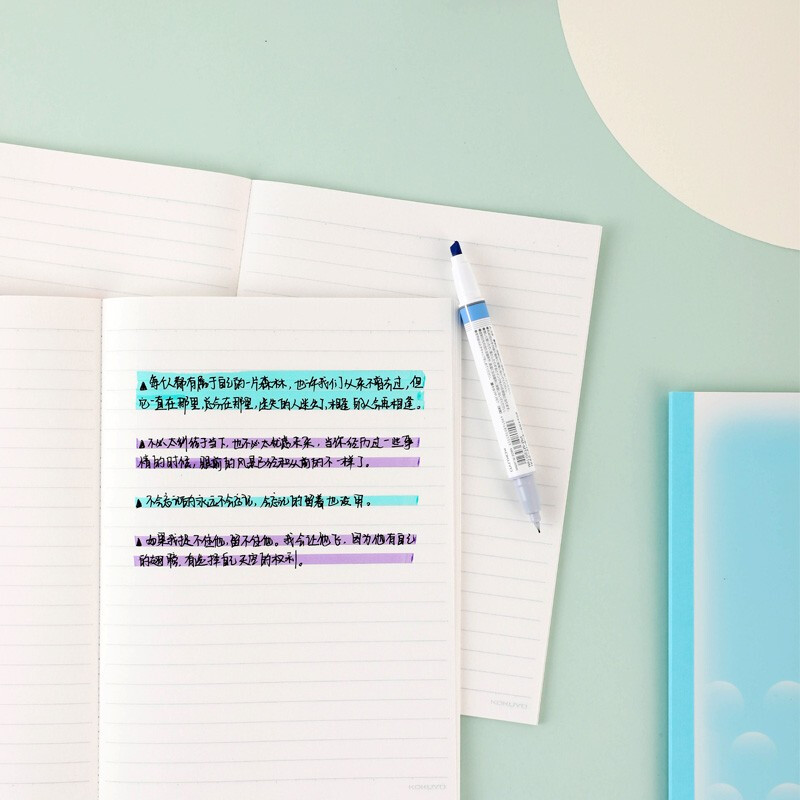 ▲每个人都有属于自己的一片森林，也许我们从来不曾去过，但
它一直在那里，总会在那里，迷失的人迷失了，相逢的人会再相逢。
▲不必太纠结于当下，也不必太忧虑未来，当你经历过一些事
情的时候，眼前的风景已经和从前的不一样了。
▲不会忘记的永远不会忘记，会忘记的留着也没用。
▲如果我捉不住他，留不住他。我会让他飞，因为他有自己
的翅膀，有选择自己天空的权利。